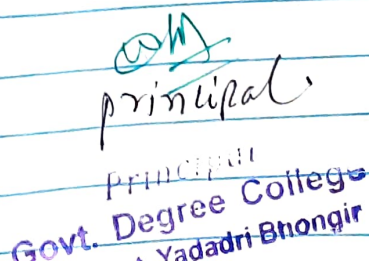 principal.
Principal
Govt. Degree College
Yadadri Bhongir